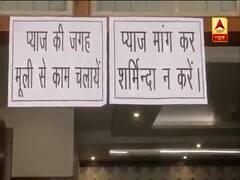 प्याज की जगह
मूली से काम चलायें
प्याज मांग कर
शर्मिन्दा न करें।
abp
न्यूज़